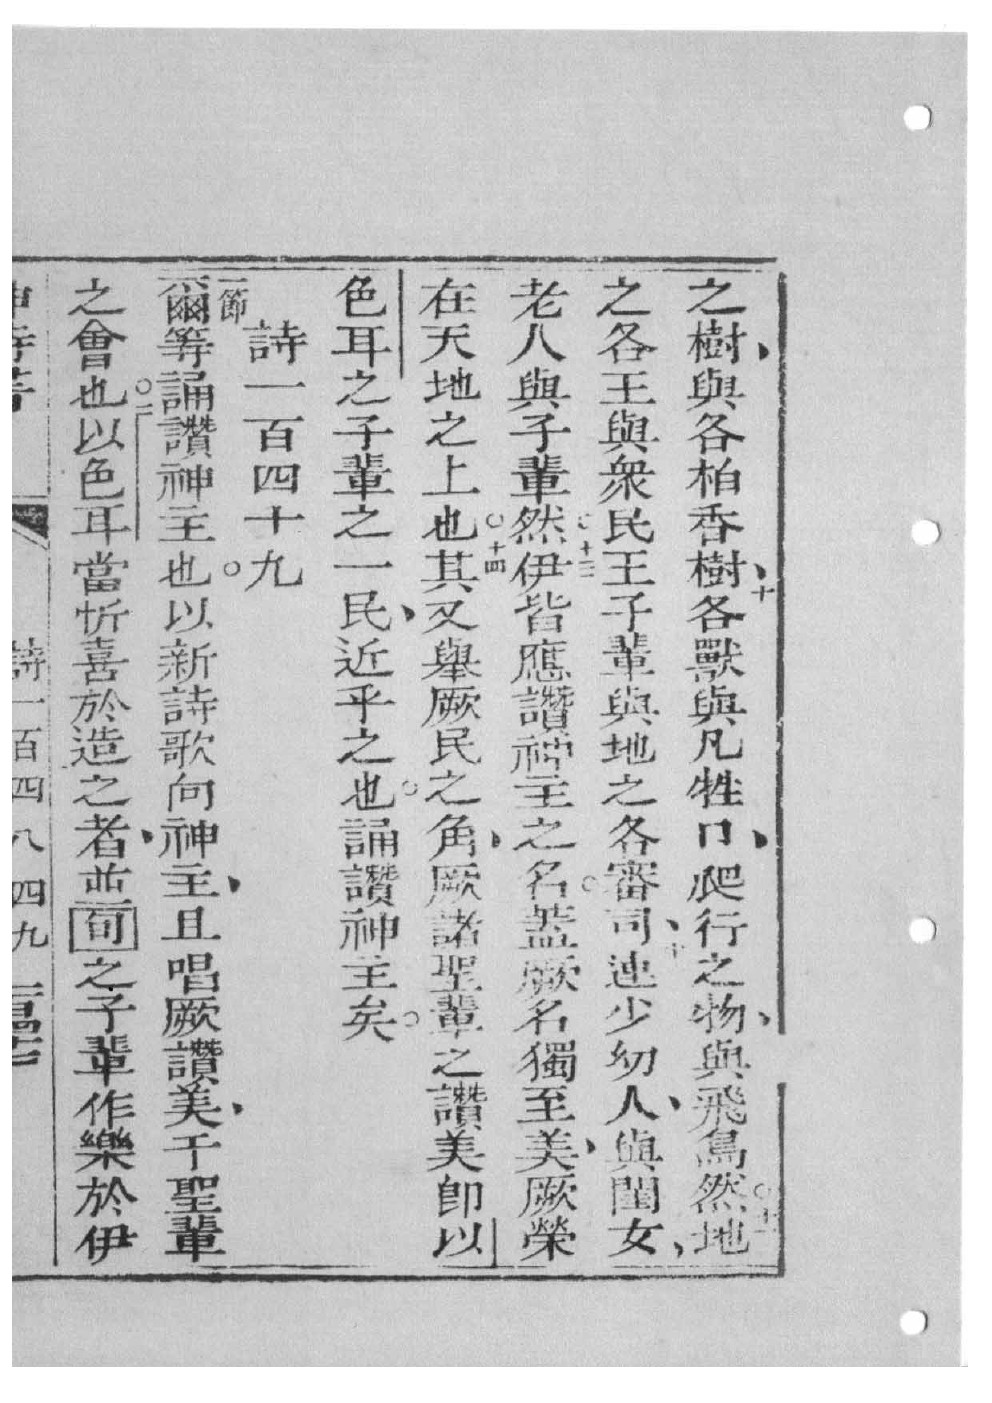 之樹、與各柏香樹、十各獸與凡牲口、爬行之物、與飛鳥然○十一地
之各王與衆民王子輩與地之各審司、十二連少幼人、與閨女、
老人與子輩○十三然伊皆應讚神主之名○葢厥名獨至美、厥榮
在天地之上也○十四其又舉厥民之角、厥諸聖輩之讚美卽以
色耳之子輩之一民、近乎之也○誦讚神主矣○
詩一百四十九
一節爾等誦讚神主也○以新詩歌向神主、且唱厥讚美、于聖輩
之會也○二以色耳當忻喜於造之者、並旬之子輩作樂於伊
神詩書 詩一百四八 四九